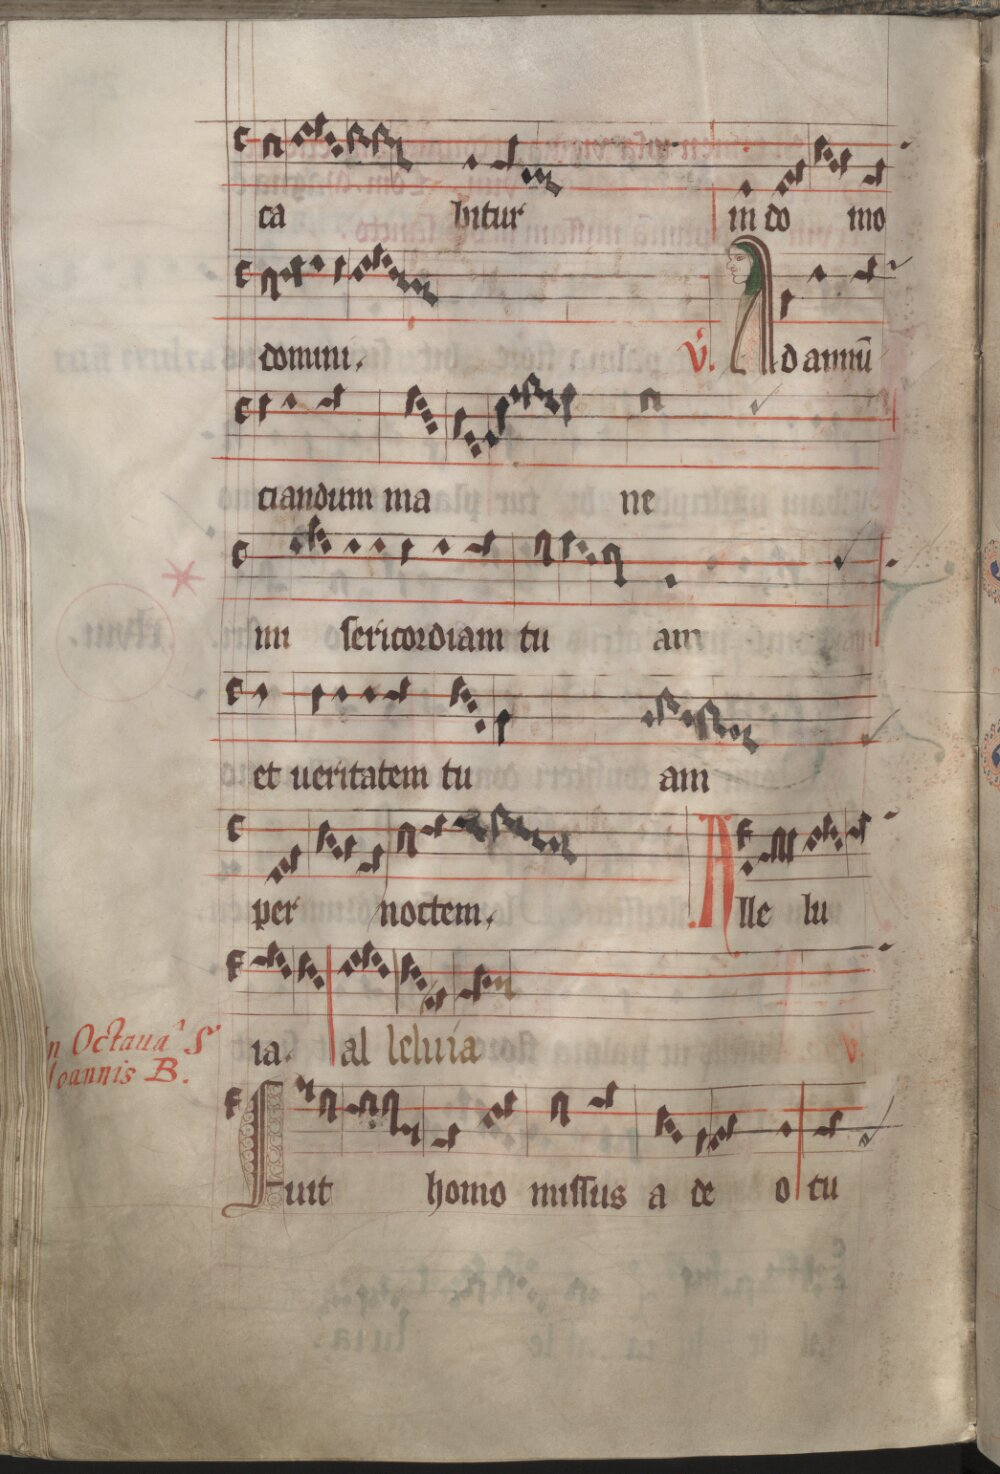 ca bitur in do mo
domini. V. Ad annū
ciandum ma ne
mi sericordiam tu am
et ueritatem tu am
per noctem. Alle lu
ia. al leluia
n Octaua S
Ioannis B.
Fuit homo missus a de o tu